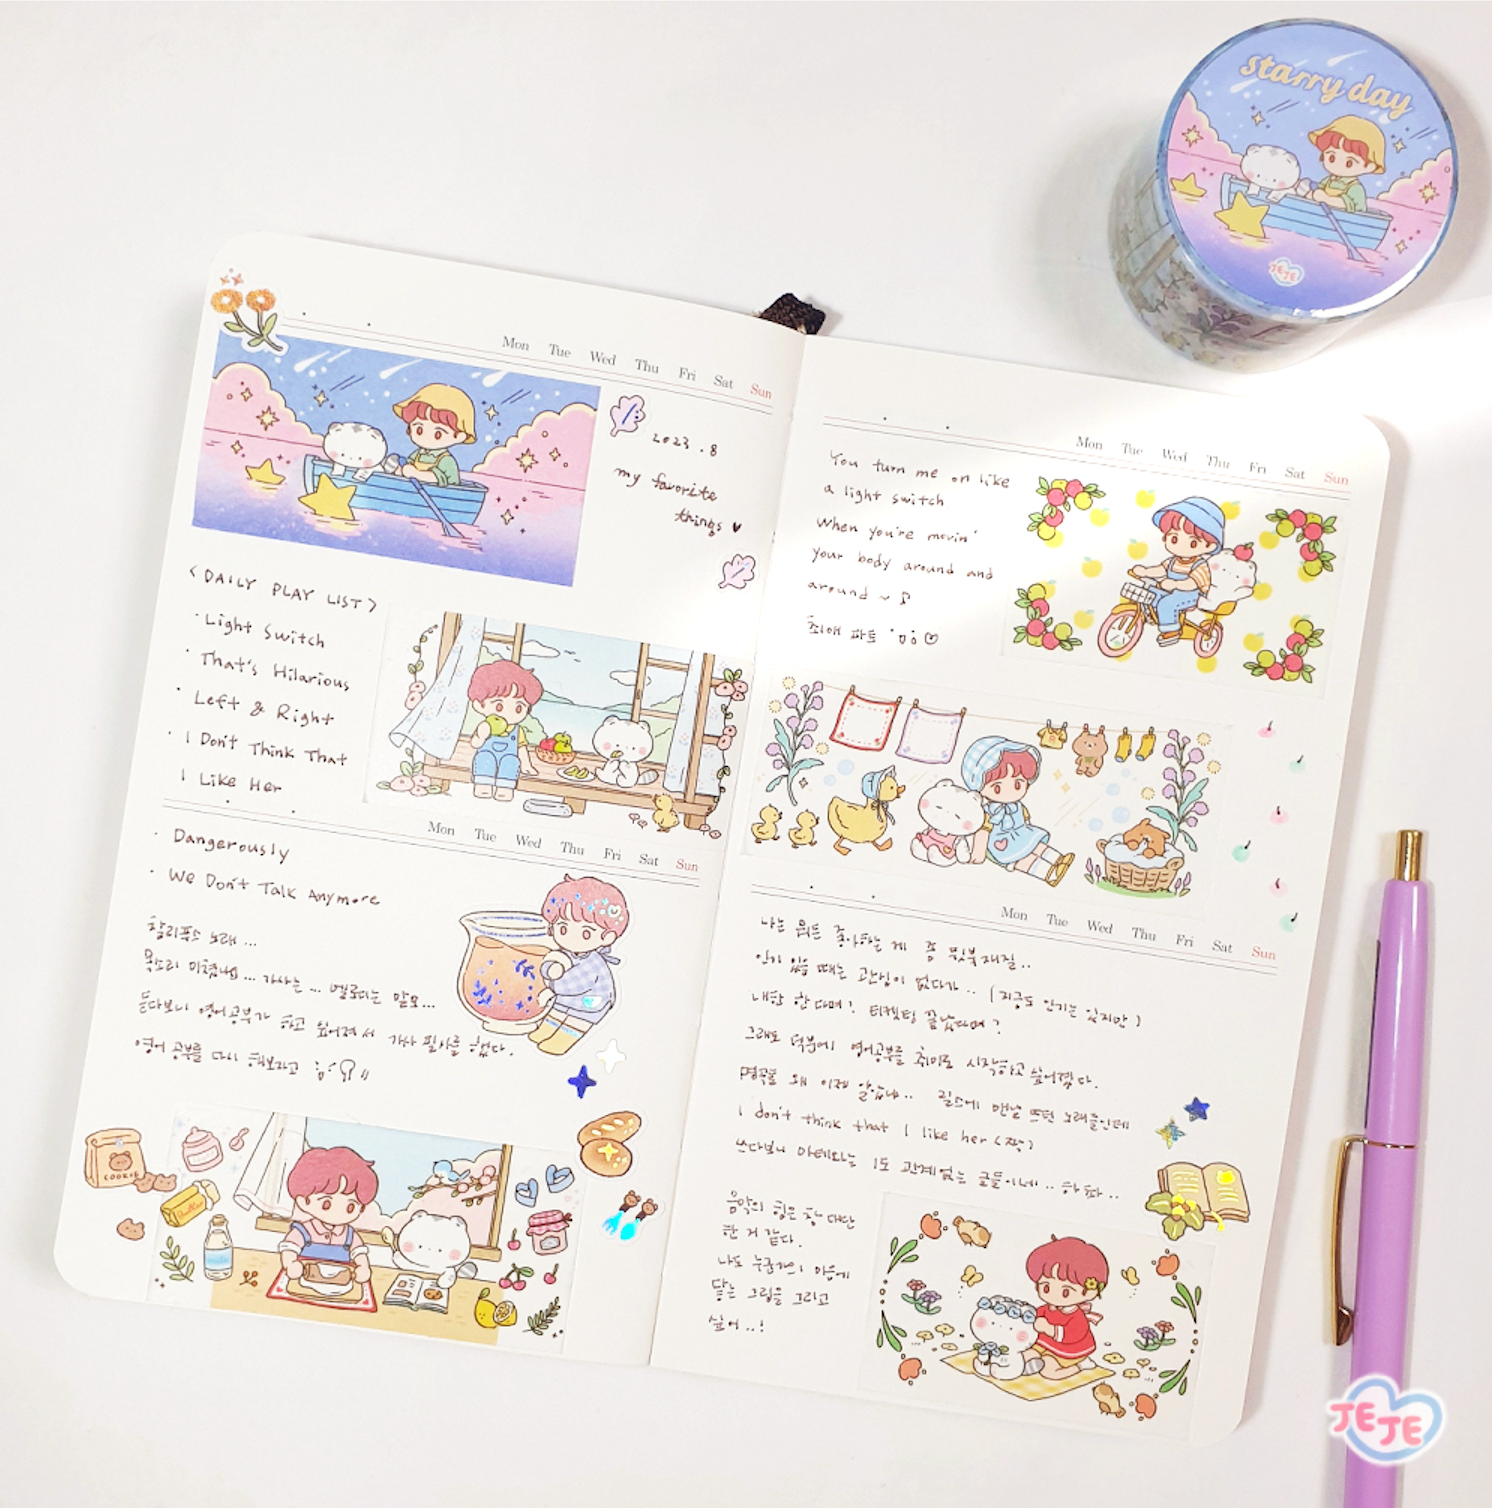 starry day
JEJE
Mon Tue Wed Thu Fri Sat Sun
2023. 8
my favorite
things ♥
<DAILY PLAY LIST>
· Light Switch
· That's Hilarious
· Left & Right
· I Don't Think That
I Like Her
Mon Tue Wed Thu Fri Sat Sun
· Dangerously
· We Don't Talk Anymore
찰리푸스 노래...
목소리 미쳤네... 가사는... 멜로디는 말모...
듣다보니 영어공부가 하고 싶어져서 가사 필사를 했다.
영어 공부를 다시 해보라고
COOKIE
Butter
Mon Tue Wed Thu Fri Sat Sun
You turn me on like
a light switch
When you're movin'
your body around and
around ~ ♪
최애 파트
Mon Tue Wed Thu Fri Sat Sun
나는 뭐든 좋아하는 게 좀 뒷북재질..
인기 있을 때는 관심이 없다가.. (지금도 인기는 있지만)
내한 한다며? 티켓팅 끝났다며?
그래도 덕분에 영어공부를 취미로 시작하고 싶어졌다.
명곡을 왜 이제 알았나.. 릴스에 맨날 뜨던 노래들인데
I don't think that I like her (짝)
쓰다보니 마테와는 1도 관계없는 글들이네.. 하핫..
음악의 힘은 참 대단
한 거 같다.
나도 누군가의 마음에
닿는 그림을 그리고
싶어..!
JEJE